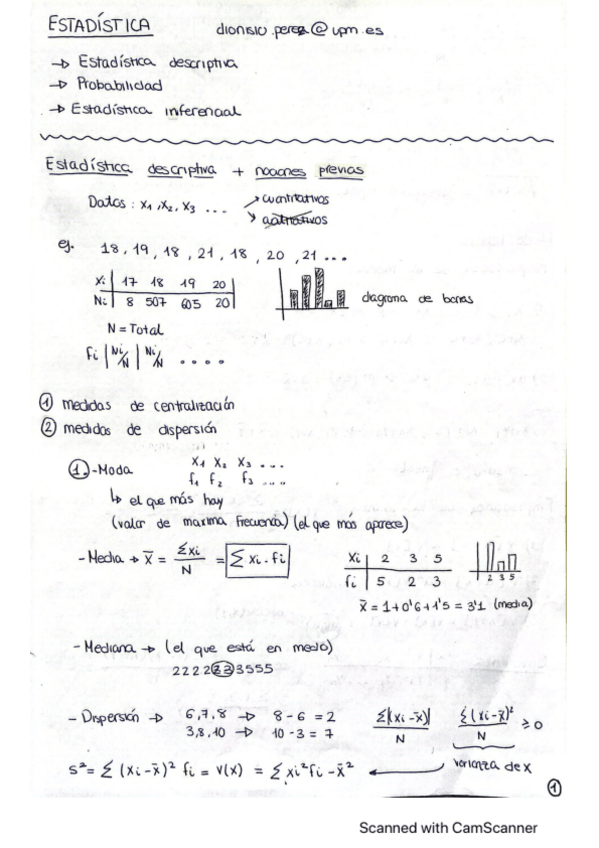 ESTADÍSTICA dionisio.perez@upm.es
→ Estadística descriptiva
→ Probabilidad
→ Estadística inferencial
Estadística descriptiva + nociones previas
Datos: x1, x2, x3 ... → cuantitativos
→ cualitativos
ej. 18, 19, 18, 21, 18, 20, 21 ...
xi | 17 18 19 20
Ni | 8 507 605 20
diagrama de barras
N = Total
fi | Ni/N | Ni/N ....
① medidas de centralización
② medidas de dispersión
①.-Moda x1 x2 x3 ...
f1 f2 f3 ....
↳ el que más hay
(valor de maxima frecuencia) (el que más aparece)
- Media → x̄ = Σxi/N = Σ xi·fi
xi | 2 3 5
fi | 5 2 3
2 3 5
x̄ = 1+0'6+1'5 = 3'1 (media)
- Mediana → (el que está en medio)
2222233555
- Dispersión → 6,7,8 → 8-6 = 2
3,8,10 → 10-3 = 7
Σ|(xi-x̄)|/N Σ(xi-x̄)²/N ≥ 0
s² = Σ (xi-x̄)² fi = v(x) = Σ xi² fi - x̄² ← varianza de x
1
Scanned with CamScanner